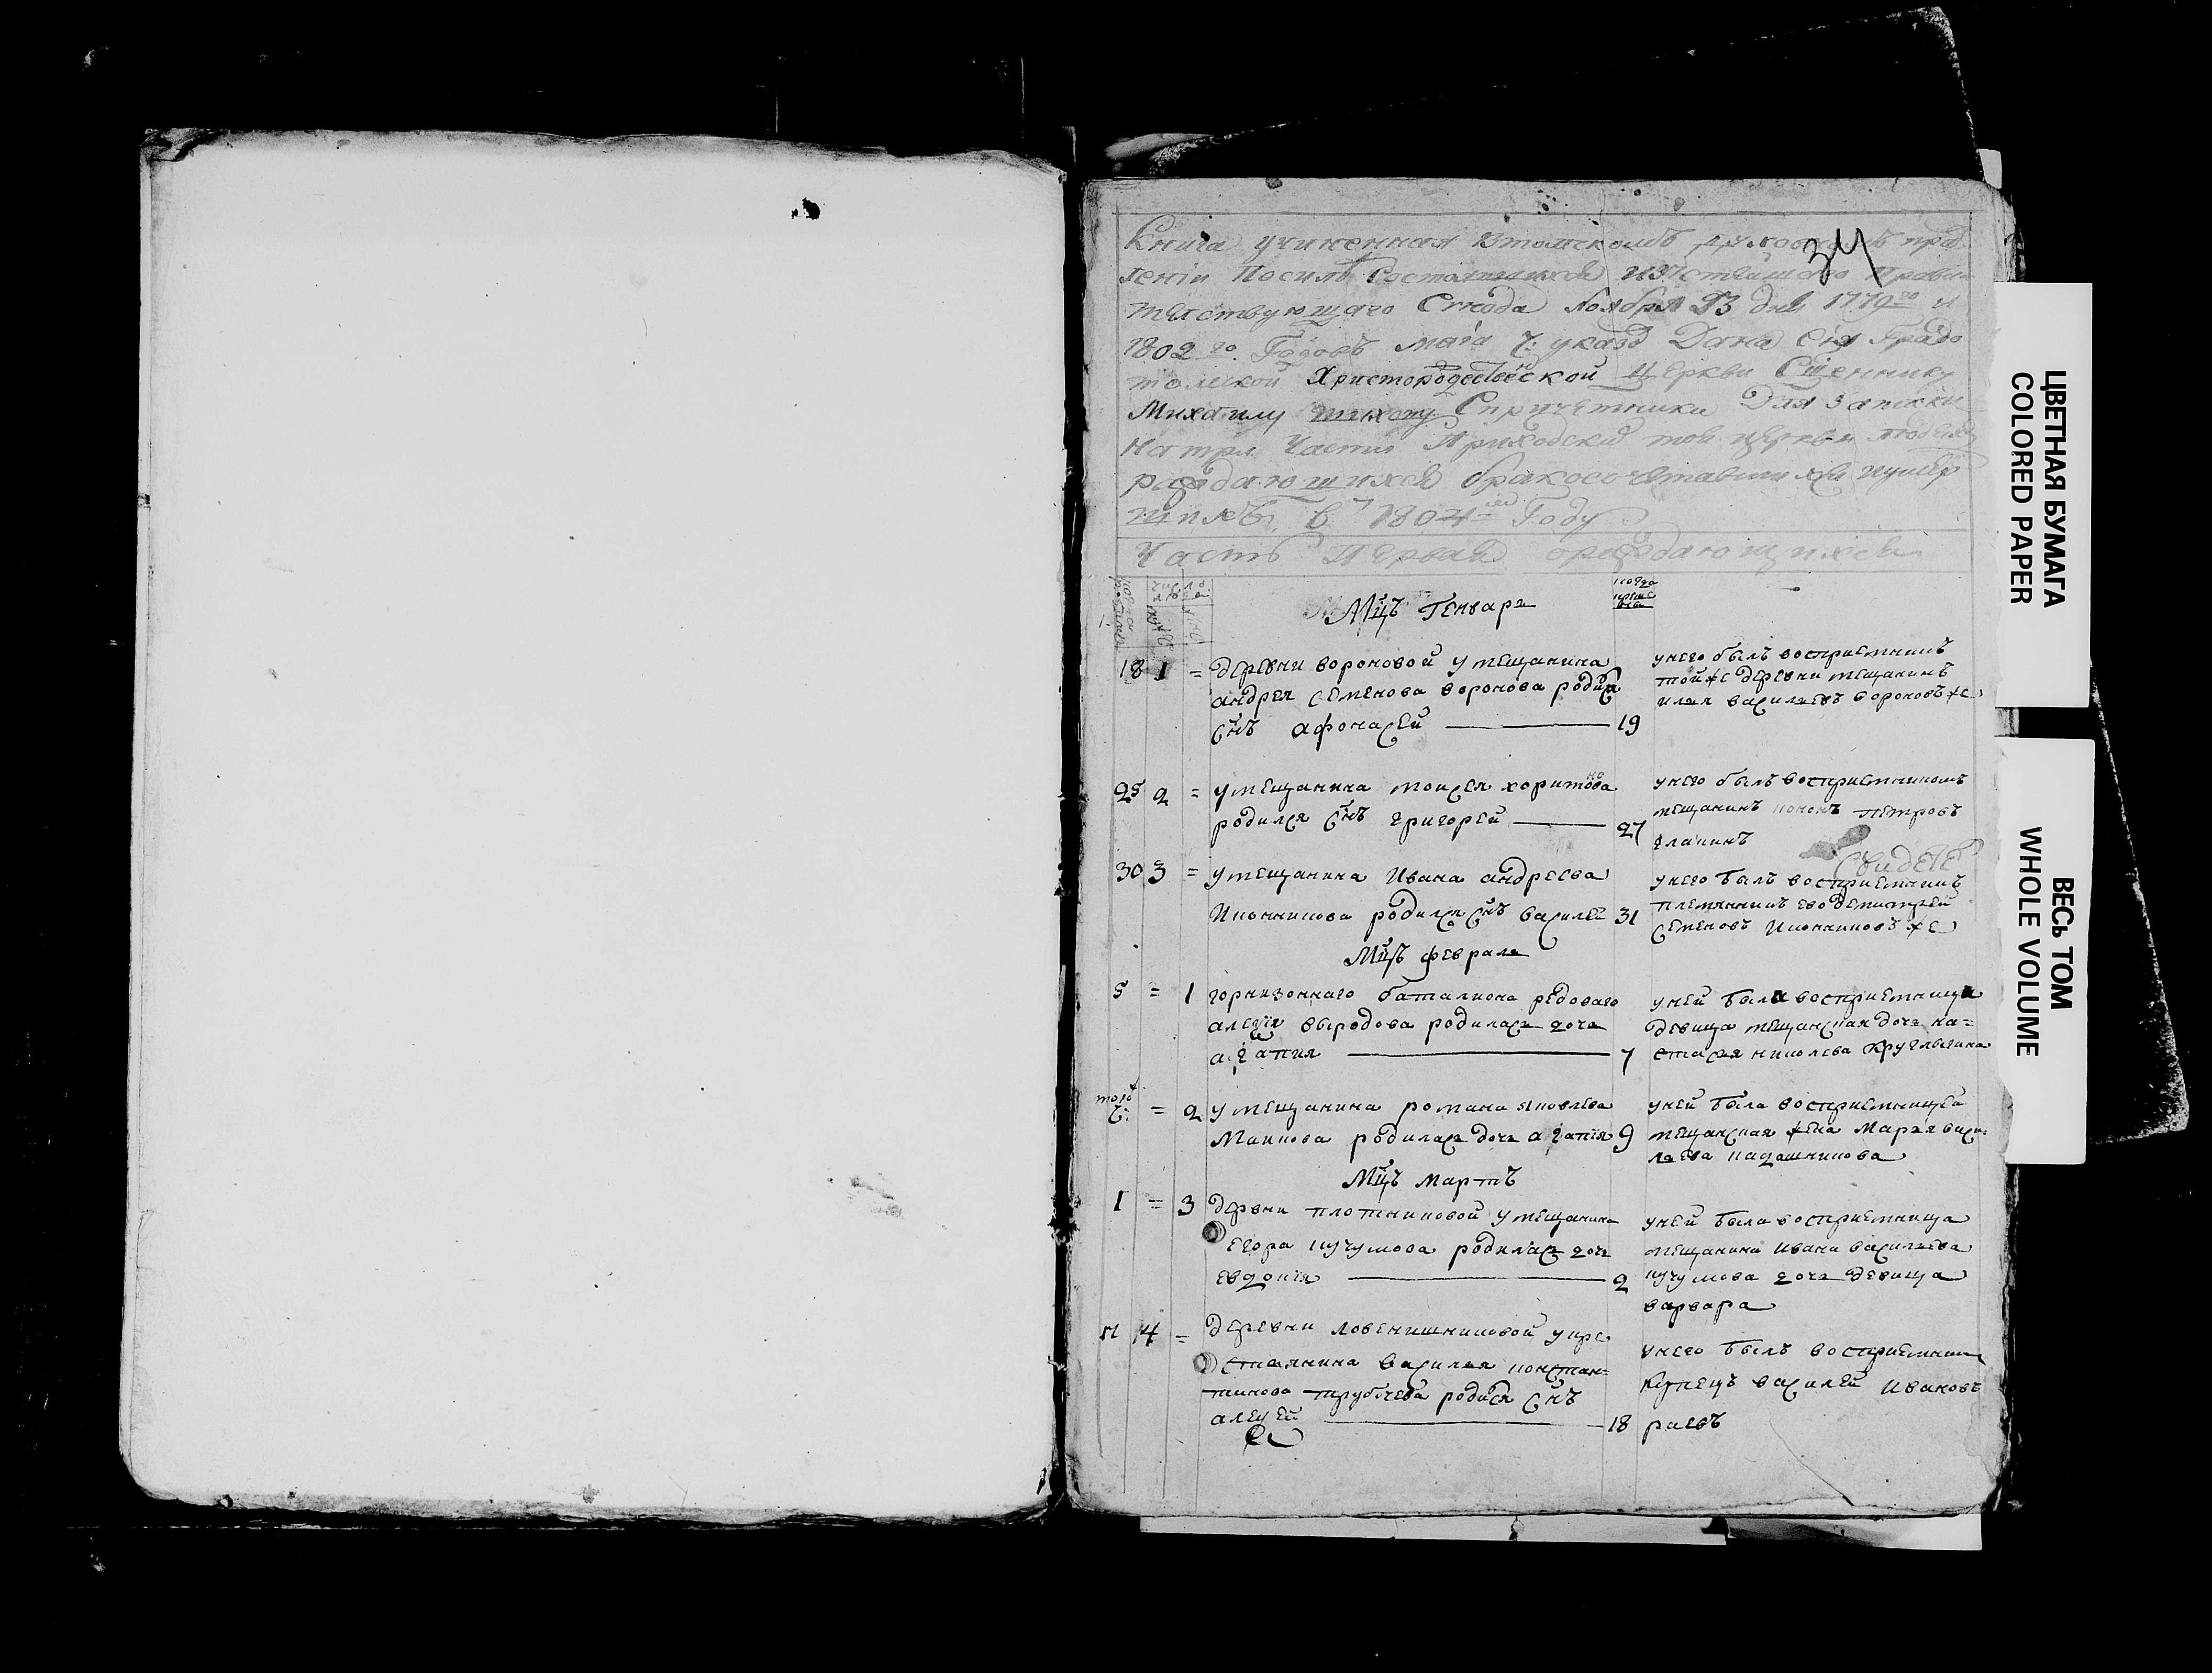 34
Книга учиненная втомскомъ духовномъ прав
ленiи Посилѣ Состоявшихся изъ Святейшаго Правит
телствующаго Сѵнода ноября 23 дня 1779го и
1802го Годовъ маiя 7: указовъ Дана Сiя Градо
томской Христорождественской Церкви Сщеннику
Михаилу Спричетники Для Записки
на три Части Приходскихъ той церкви людей
раждающихся бракосочетавшихся иумер
шихъ в 1804мъ Году
Часть Первая ораждающихся
Мцъ Генварь
18 1 = деревни вороновой умещанина
андрея семенова воронова родился
снъ афонасей 19
унего былъ восприемникъ
тойже деревни мещанинъ
илья васильевъ вороновъ же
25 2 = умещанина моисея харитонова
родился снъ григорей 27
унего былъ восприемникомъ
мещанинъ кононъ петровъ
Свидѣте
30 3 = умещанина Ивана андреева
Иконникова родился снъ василей 31
унего былъ восприемникъ
племянникъ его демитрей
семеновъ Иконниковъ же
Мцъ февраль
5 = 1 горнизоннаго баталиона редоваго
алексея выродова родилась дочь
агапия 7
уней была восприемница
девица мещанская дочь на=
стасья николева Круглыхина
тогож
7: = 2 умещанина романа яковлева
Маикова родилась дочь агапiя 9
уней была восприемницей
мещанская жена Марья васи=
льева кадашникова
Мцъ Мартъ
1 = 3 дервни плотниковой умещанина
Егора кучумова родилась дочь
евдокiя 2
уней была восприемница
мещанина Ивана васильева
кучумова дочь девица
варвара
4 = деревни укре
стьянина василья констан=
тинова трубачева родися снъ
алексей 18
унего былъ восприемник
Купецъ василей Ивановъ
раевъ
ЦВЕТНАЯ БУМАГА
COLORED PAPER
ВЕСЬ ТОМ
WHOLE VOLUME